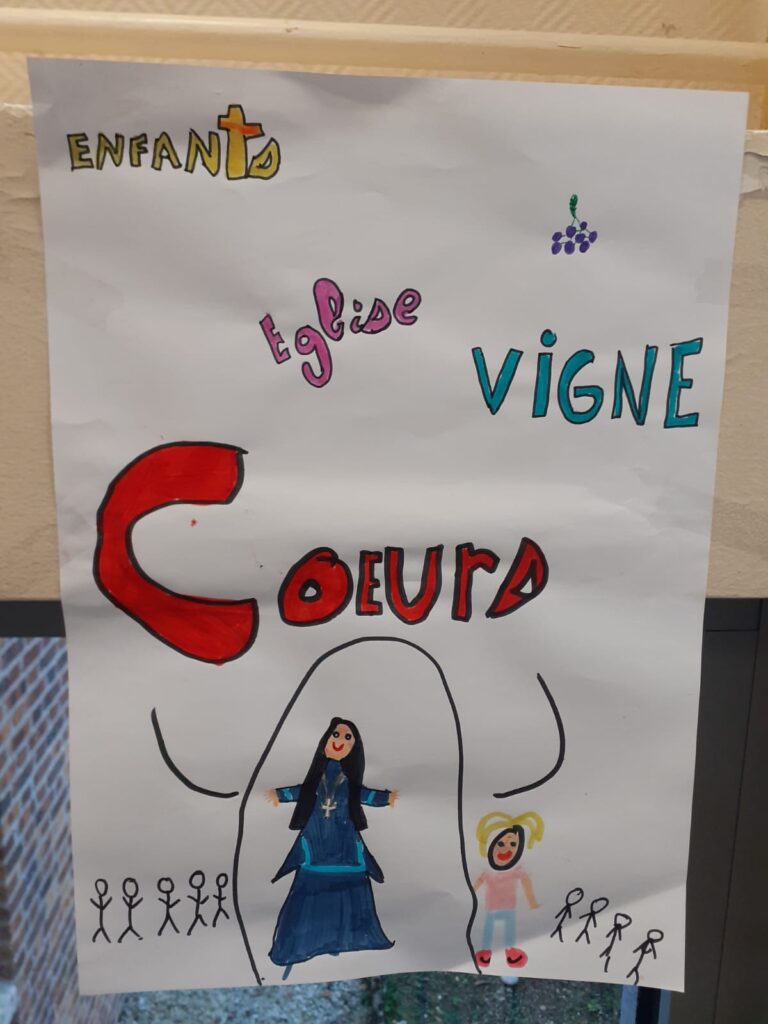 ENFANts
Eglise
ViGNE
CoEUrs